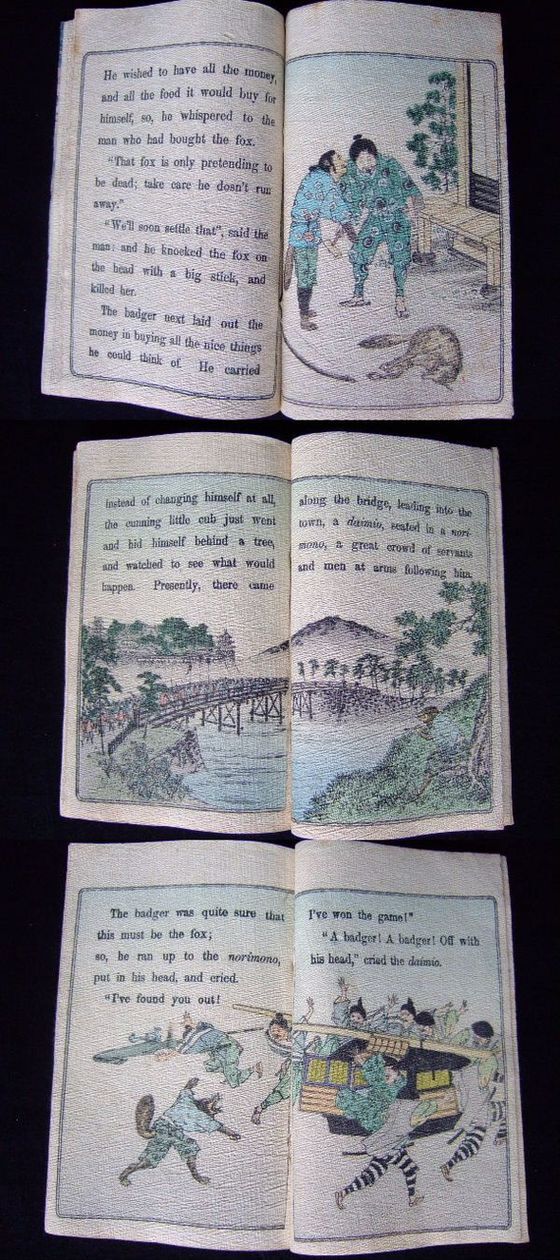 He wished to have all the money,
and all the food it would buy for
himself, so, he whispered to the
man who had bought the fox.
"That fox is only pretending to
be dead; take care he dosn't run
away."
"We'll soon settle that", said the
man: and he knocked the fox on
the head with a big stick, and
killed her.
The badger next laid out the
money in buying all the nice things
he could think of. He carried
instead of changing himself at all,
the cunning little cub just went
and hid himself behind a tree,
and watched to see what would
happen. Presently, there came
along the bridge, leading into the
town, a daimio, seated in a nori-
mono, a great crowd of servants
and men at arms following him.
The badger was quite sure that
this must be the fox;
so, he ran up to the norimono,
put in his head, and cried.
"I've found you out!
I've won the game!"
"A badger! A badger! Off with
his head," cried the daimio.